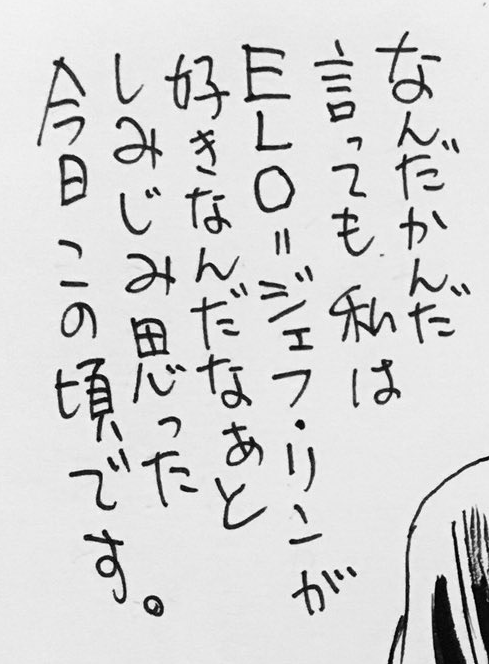 なんだかんだ
言っても私は
ELO=ジェフ・リンが
好きなんだなあと
しみじみ思った
今日この頃です。